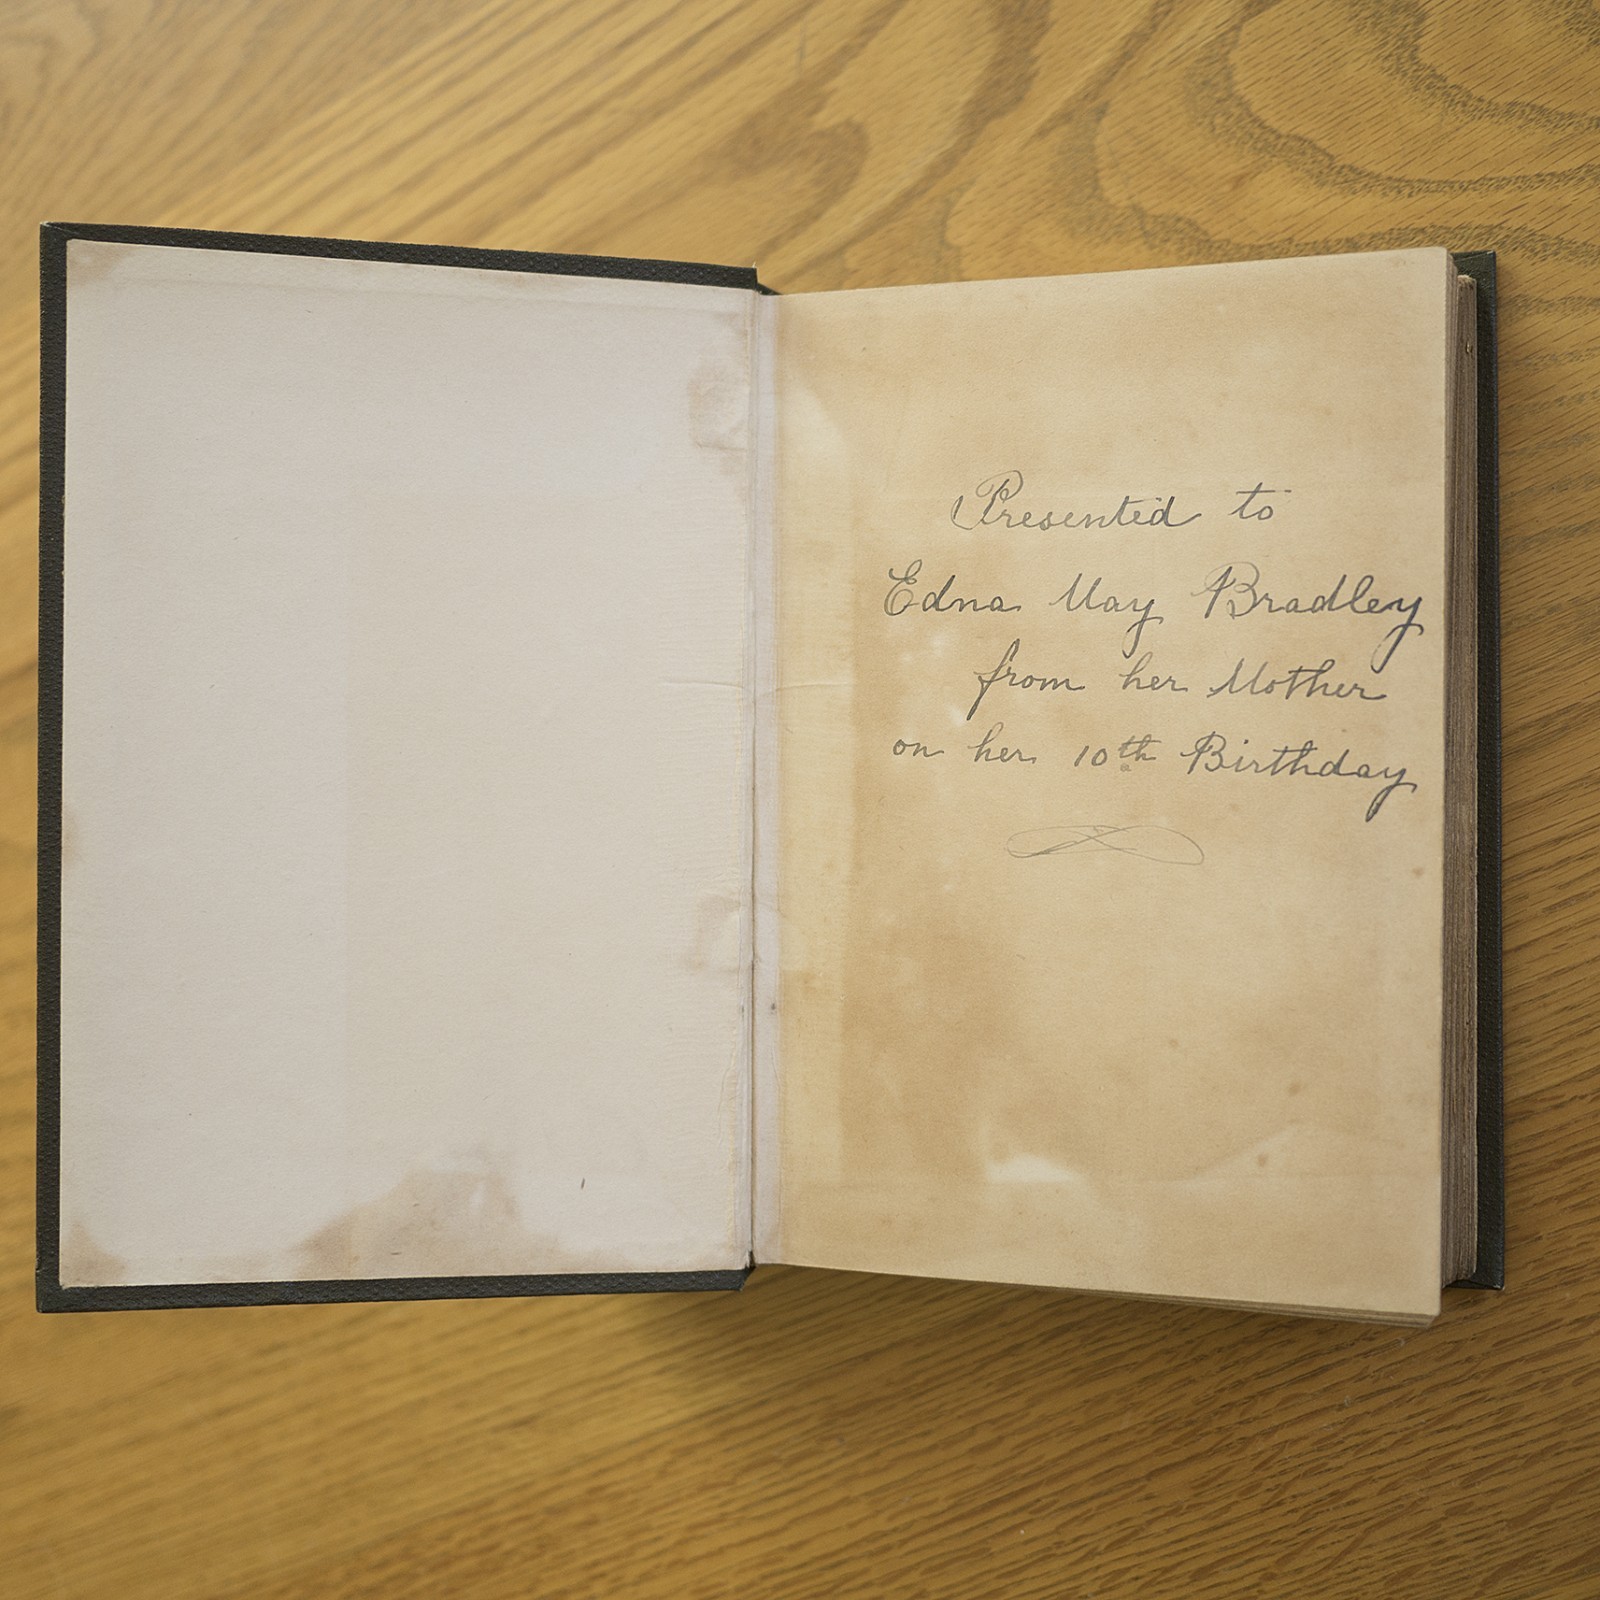 Presented to
Edna May Bradley
from her Mother
on her 10th Birthday